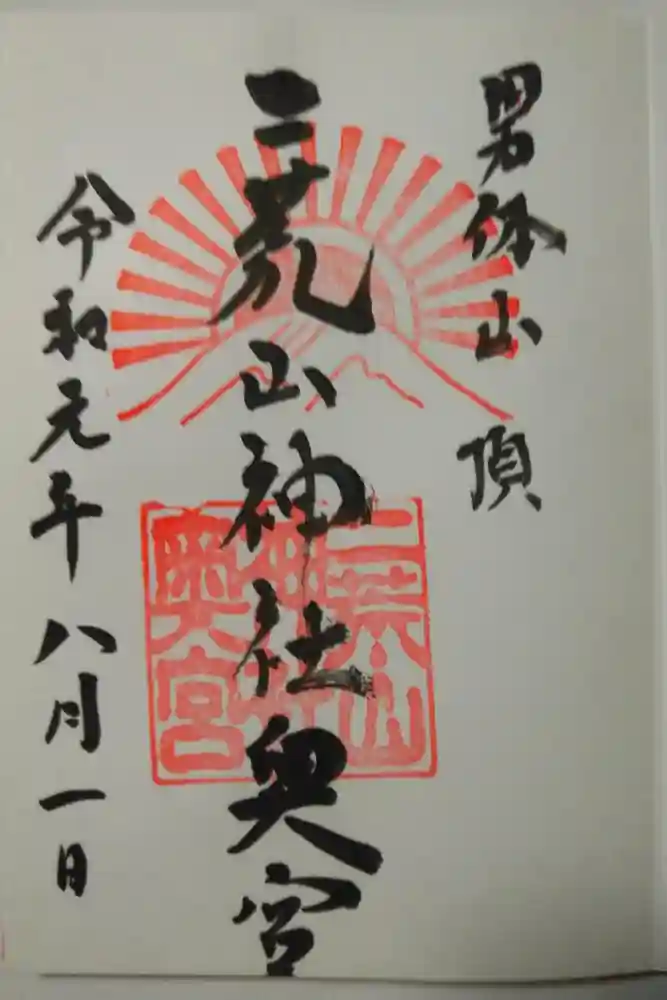 男体山頂
二荒山神社奥宮
令和元年八月一日
二荒山
神社
奥宮